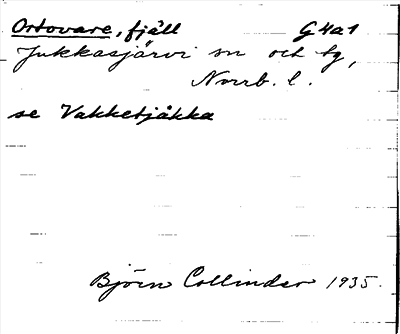 Ortovare, fjäll G4a1
Jukkasjärvi sn och tg,
Norrb. l.
se Vakketjåkka
Björn Collinder 1935.